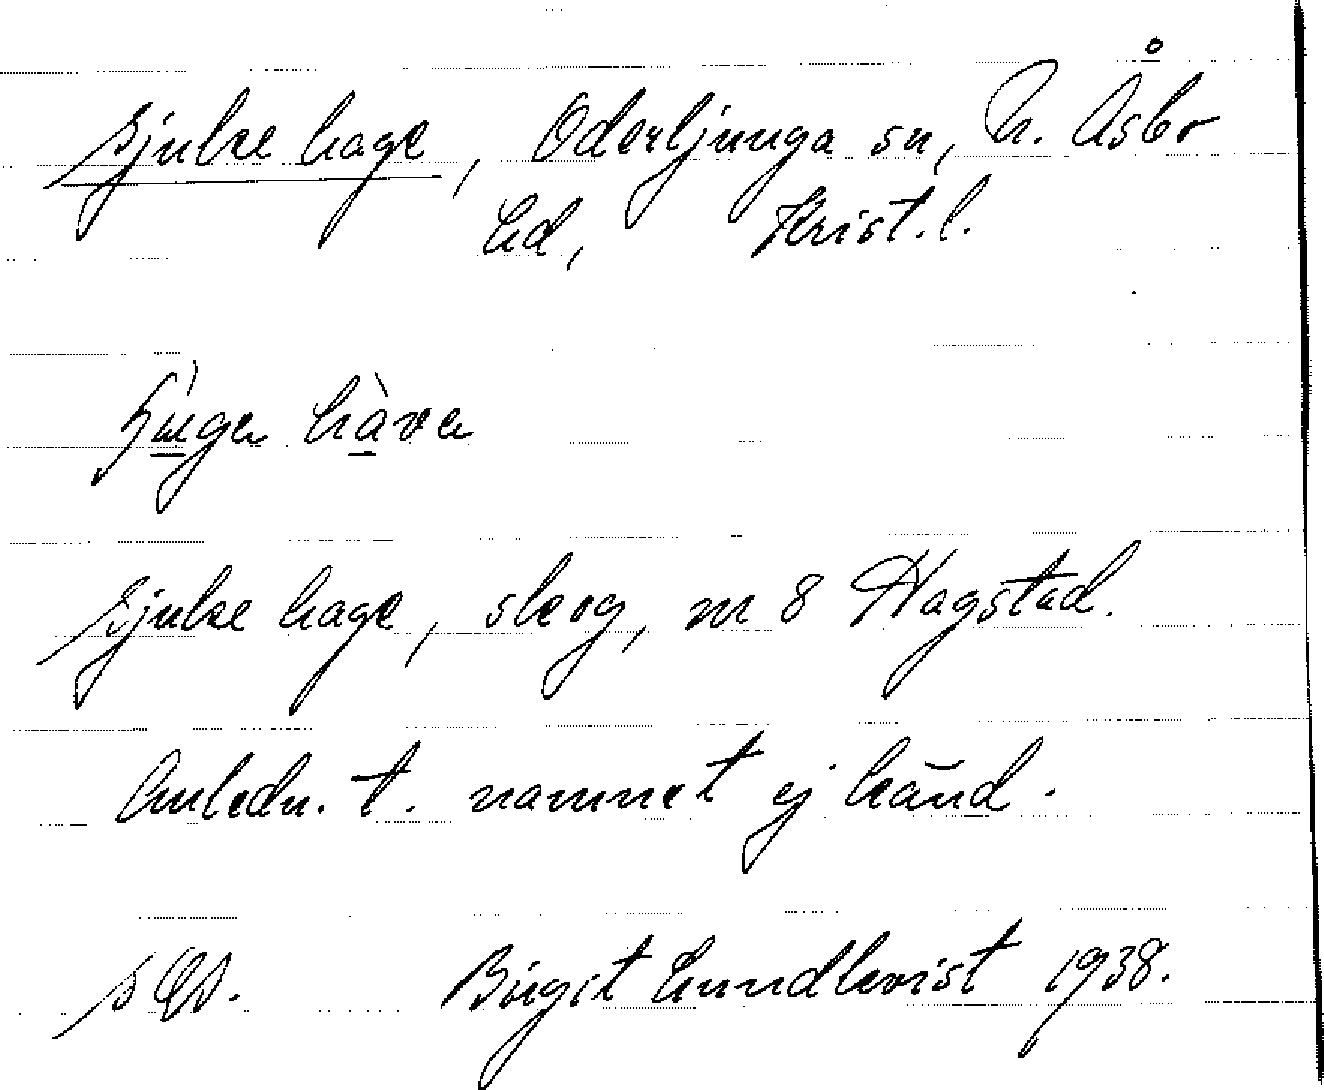 Sjuke hage, Oderljunga sn, N. Åsbo
hd, Krist. l.
hàva
Sjuke hage, skog, nr 8 Hagstad.
Anledn. t. namnet ej känd.
Birgit Lundkvist 1938.